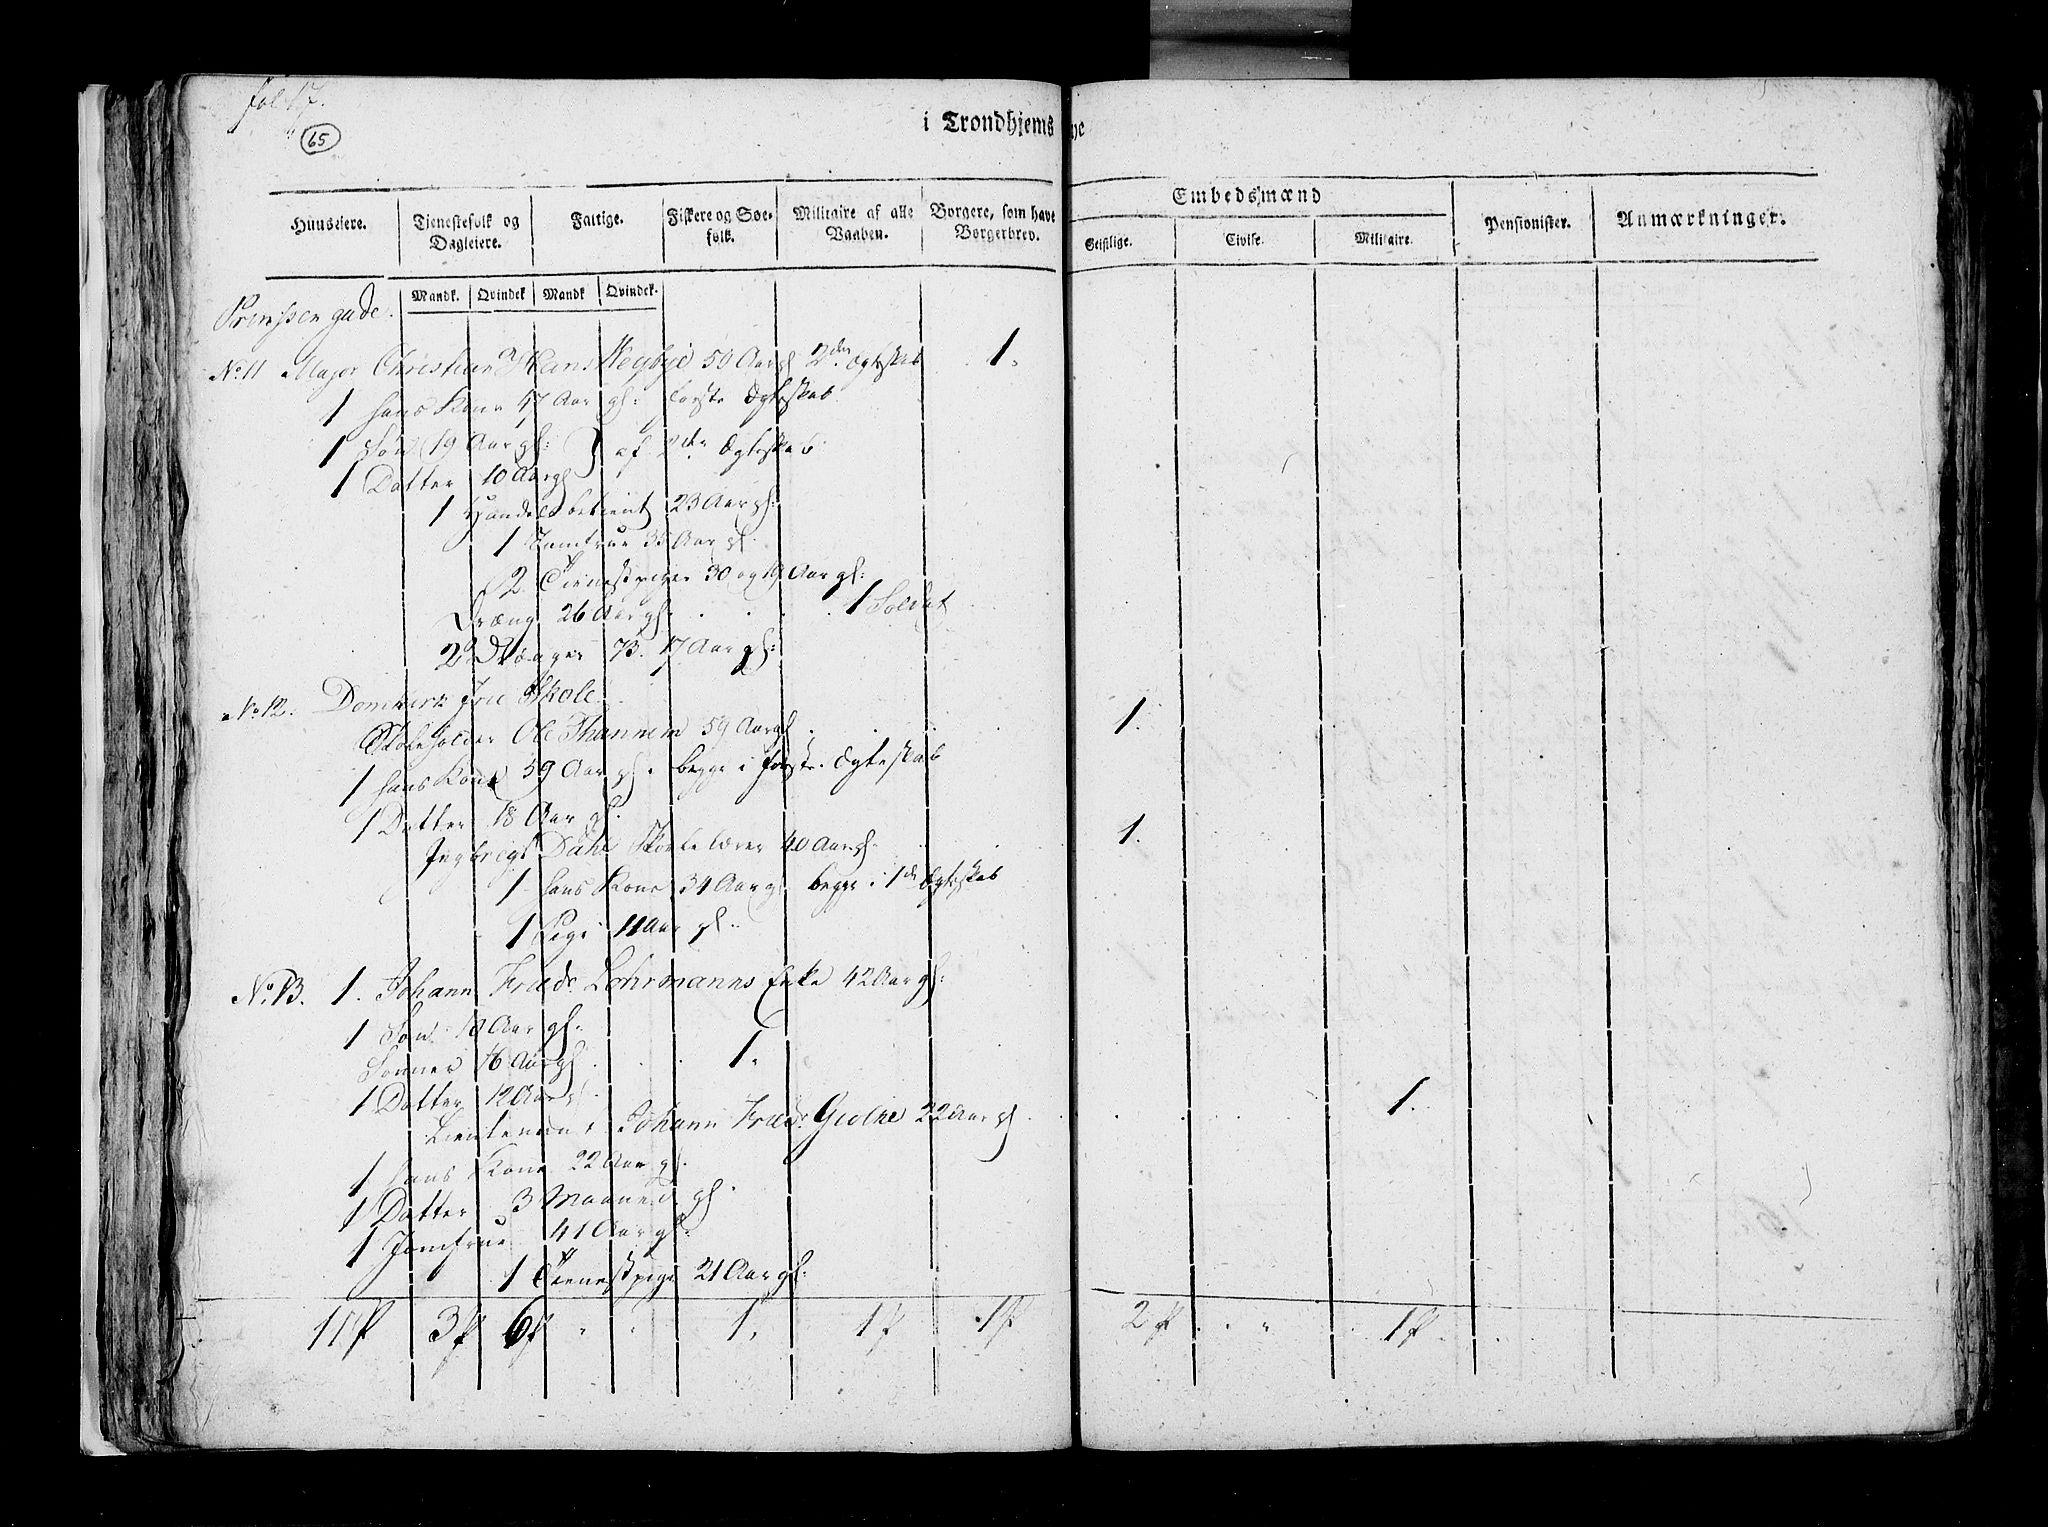 fol 17.
65
i Trondhjems
Embedsmænd
Huuseiere.
Tienestefolk og Dagleiere.
Fattige.
Fiskere og Søefolk.
Militaire af alle Vaaben.
Borgere, som have Borgerbrev.
Geistlige.
Civile.
Militaire.
Pensionister.
Anmærkninger.
Mandk. Qvindek Mandk Qvindek.
Prinssen gade.
No 11 Major Christian 50 Aar gl 2den Ægteskab 1.
1 hans Kone 47 Aar gl: første Ægteskab
1 Søn 19 Aar gl: } af 2den Ægteskab
1 Datter 10 Aar gl
1 Handelsbetient 23 Aar gl:
1 Jomfrue 35 Aar gl
2 Tienestpiger 30 og 19 Aar gl:
Dræng 26 Aar gl. 1 Soldat
2 Drænger 17 Aar gl:
No 12. Domkirk Frie Skole.
Skoleholder Ole Thannem 59 Aar gl 1.
1 hans Kone 59 Aar gl. begge i første Ægteskab
1 Datter 18 Aar gl.
Dahl 40 Aar gl. 1.
1 hans Kone 34 Aar gl begge i 1de Ægteskab
1 Pige 11 Aar gl.
No 13. 1. Johann Fried. Lohrmanns Enke 42 Aar gl:
1 Søn 18 Aar gl.
Sønner 16 Aar gl 1.
1 Datter 12 Aar gl.
Lieutenant Johann Fried. 22 Aar gl 1.
1 hans Kone 22 Aar gl.
1 Datter 3 Maaned gl.
1 Jomfrue 41 Aar gl:
1 Tienestpige 21 Aar gl:
11 P 3 P 6 P " " 1. 1 P 1 P 2 P " 1 P